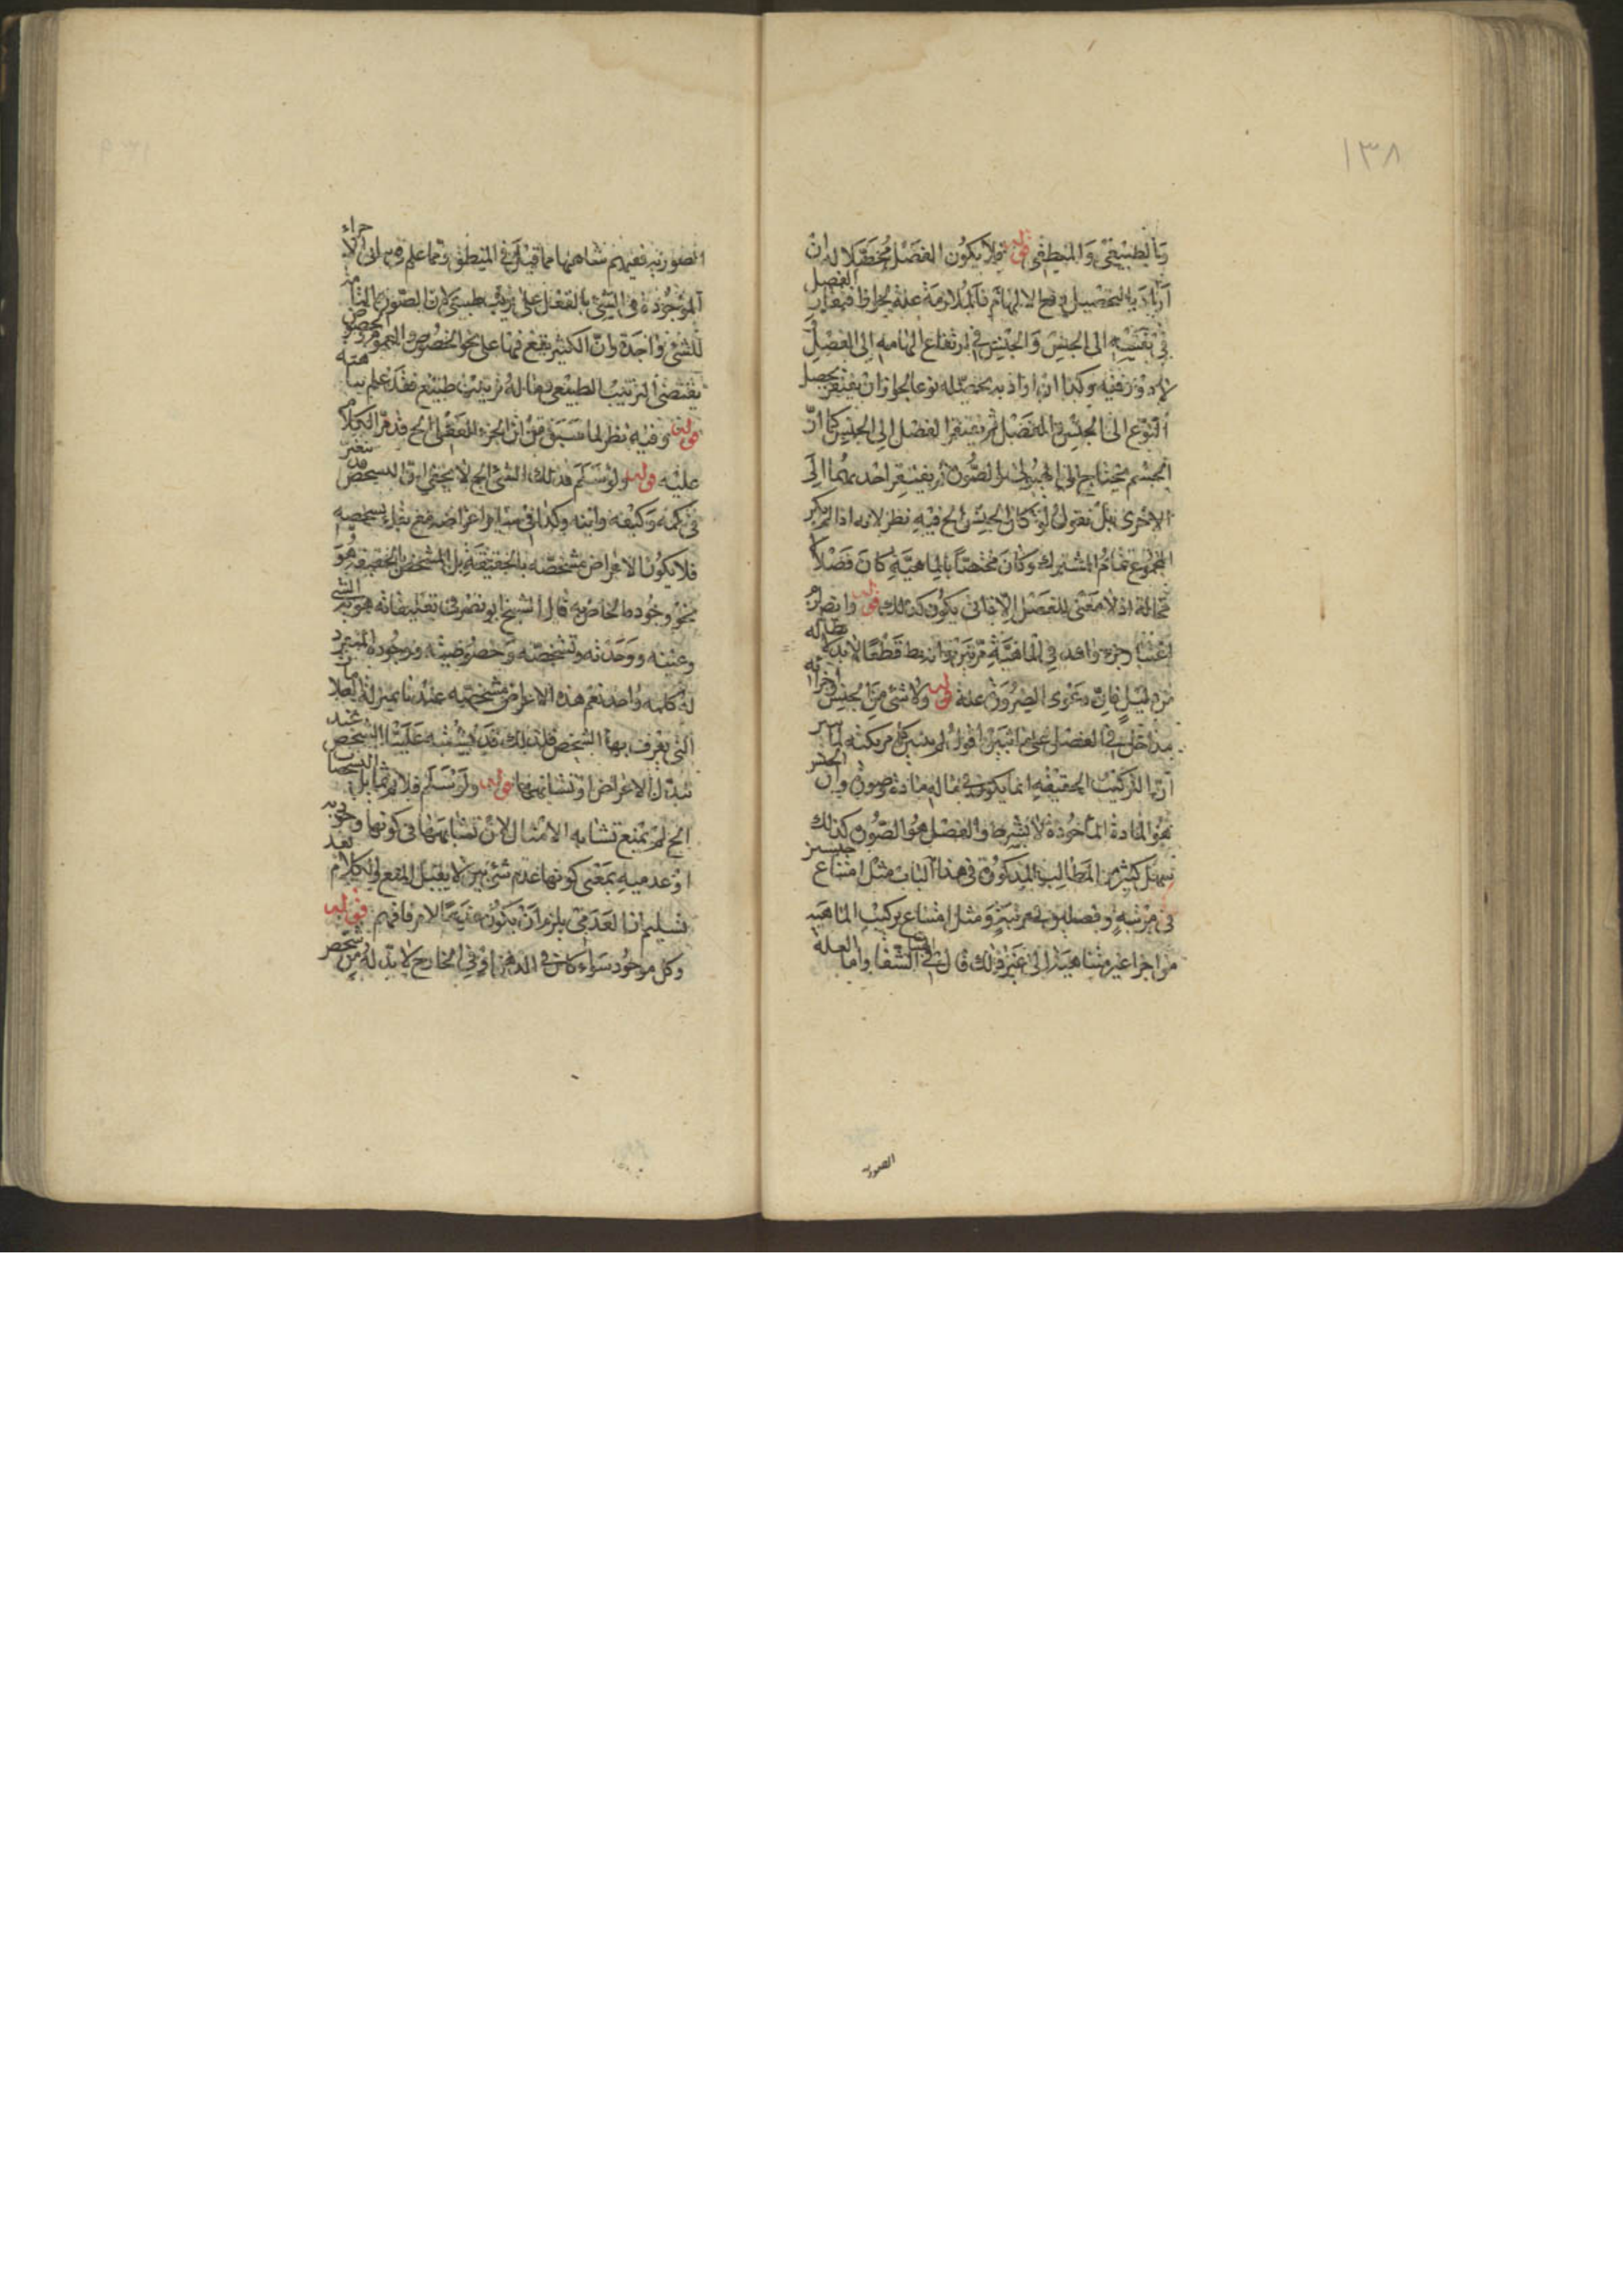 ١٣٨
بالطبيعي والمنطقي قوله فلا يكون الفصل محصلا له ان
اراد به التحصيل رفع الابهام فالملازمة عنه بجواز افتقار الفصل
في نفسه الى الجنس والجنس في ارتفاع ابهامه الى الفصل
لا دور فيه وكذا ان اراد به تحصيله نوعا لجواز ان يفتقر تحصل
النوع الى الجنس والفصل ثم يفتقر الفصل الى الجنس كما ان
الجسم يحتاج الى الهيولى والصورة ثم يفتقر احدهما الى
الاخرى بل نقول لو كان الجنس الخ فيه نظر لانه اذا لم يكن
المجموع تمام المشترك وكان مختصا بالماهية كان فصلا لا
محالة اذ لا معنى للفصل الا ما يكون كذلك قوله وايضا
اعتبار جزء واحد في الماهية مرتين باطل قطعا لا بد له
من دليل فان دعوى الضرورة عنه قوله ولا شيء من الجنس
بداخل في الفصل على ما تبين اقول لم يتبين
ان التركيب الحقيقي انما يكون فيما له مادة وصورة وان الجنس
هو المادة المأخوذة لا بشرط والفصل هو الصورة كذلك
سهل كثير من المطالب المذكورة في هذا الباب مثل امتناع جنسين
في مرتبة وفصلين في مرتبة ومثل امتناع تركيب الماهية
من اجزا غير متناهية الى غير ذلك قال في الشفا واما العلة
الصورية
الصورية فيفهم تناهيها مما قيل في المنطق ومما علم من ان الاجزاء
الموجودة في الشيء بالفعل على ترتيب طبيعي لان الصورة التامة
للشيء واحدة وان الكثير يقع فيها على نحو الخصوص والعموم
يقتضي الترتيب الطبيعي وما له ترتيب طبيعي فقد علم تناهيه
قوله وفيه نظر لما سبق من ان الجزء العقلي الخ قد مر الكلام
عليه قوله ولو سلم فذلك الشيء الخ لا يخفى ان الشخص قد يتغير
في كمه وكيفه واينه وكذا في سائر اعراضه مع بقاء تشخصه
فلا يكون الاعراض مشخصه بالحقيقة بل المشخص بالحقيقة هو
نحو وجوده الخاص به قال الشيخ ابو نصر في تعليقاته هوية الشيء
وعينه ووحدته وتشخصه وخصوصيته ووجوده المنفرد
له كلها واحد نعم هذه الاعراض مشخصة عندنا بمنزلة العلامات
التي يعرف بها الشخص فلذلك قد يشتبه علينا الشخص عند
تبدل الاعراض او تشابهها قوله ولو سلم فلا تماثل التشخصات
الخ لم يمنع تشابه الامثال لان تشابهها في كونها وجودية
او عدمية بمعنى كونها عدم شيء بين لا يقبل المنع والكلام بعد
تسليم ان العدمي يلزم ان يكون عدما لامر فافهم قوله
وكل موجود سواء كان في الذهن او في الخارج لا بد له من تشخص